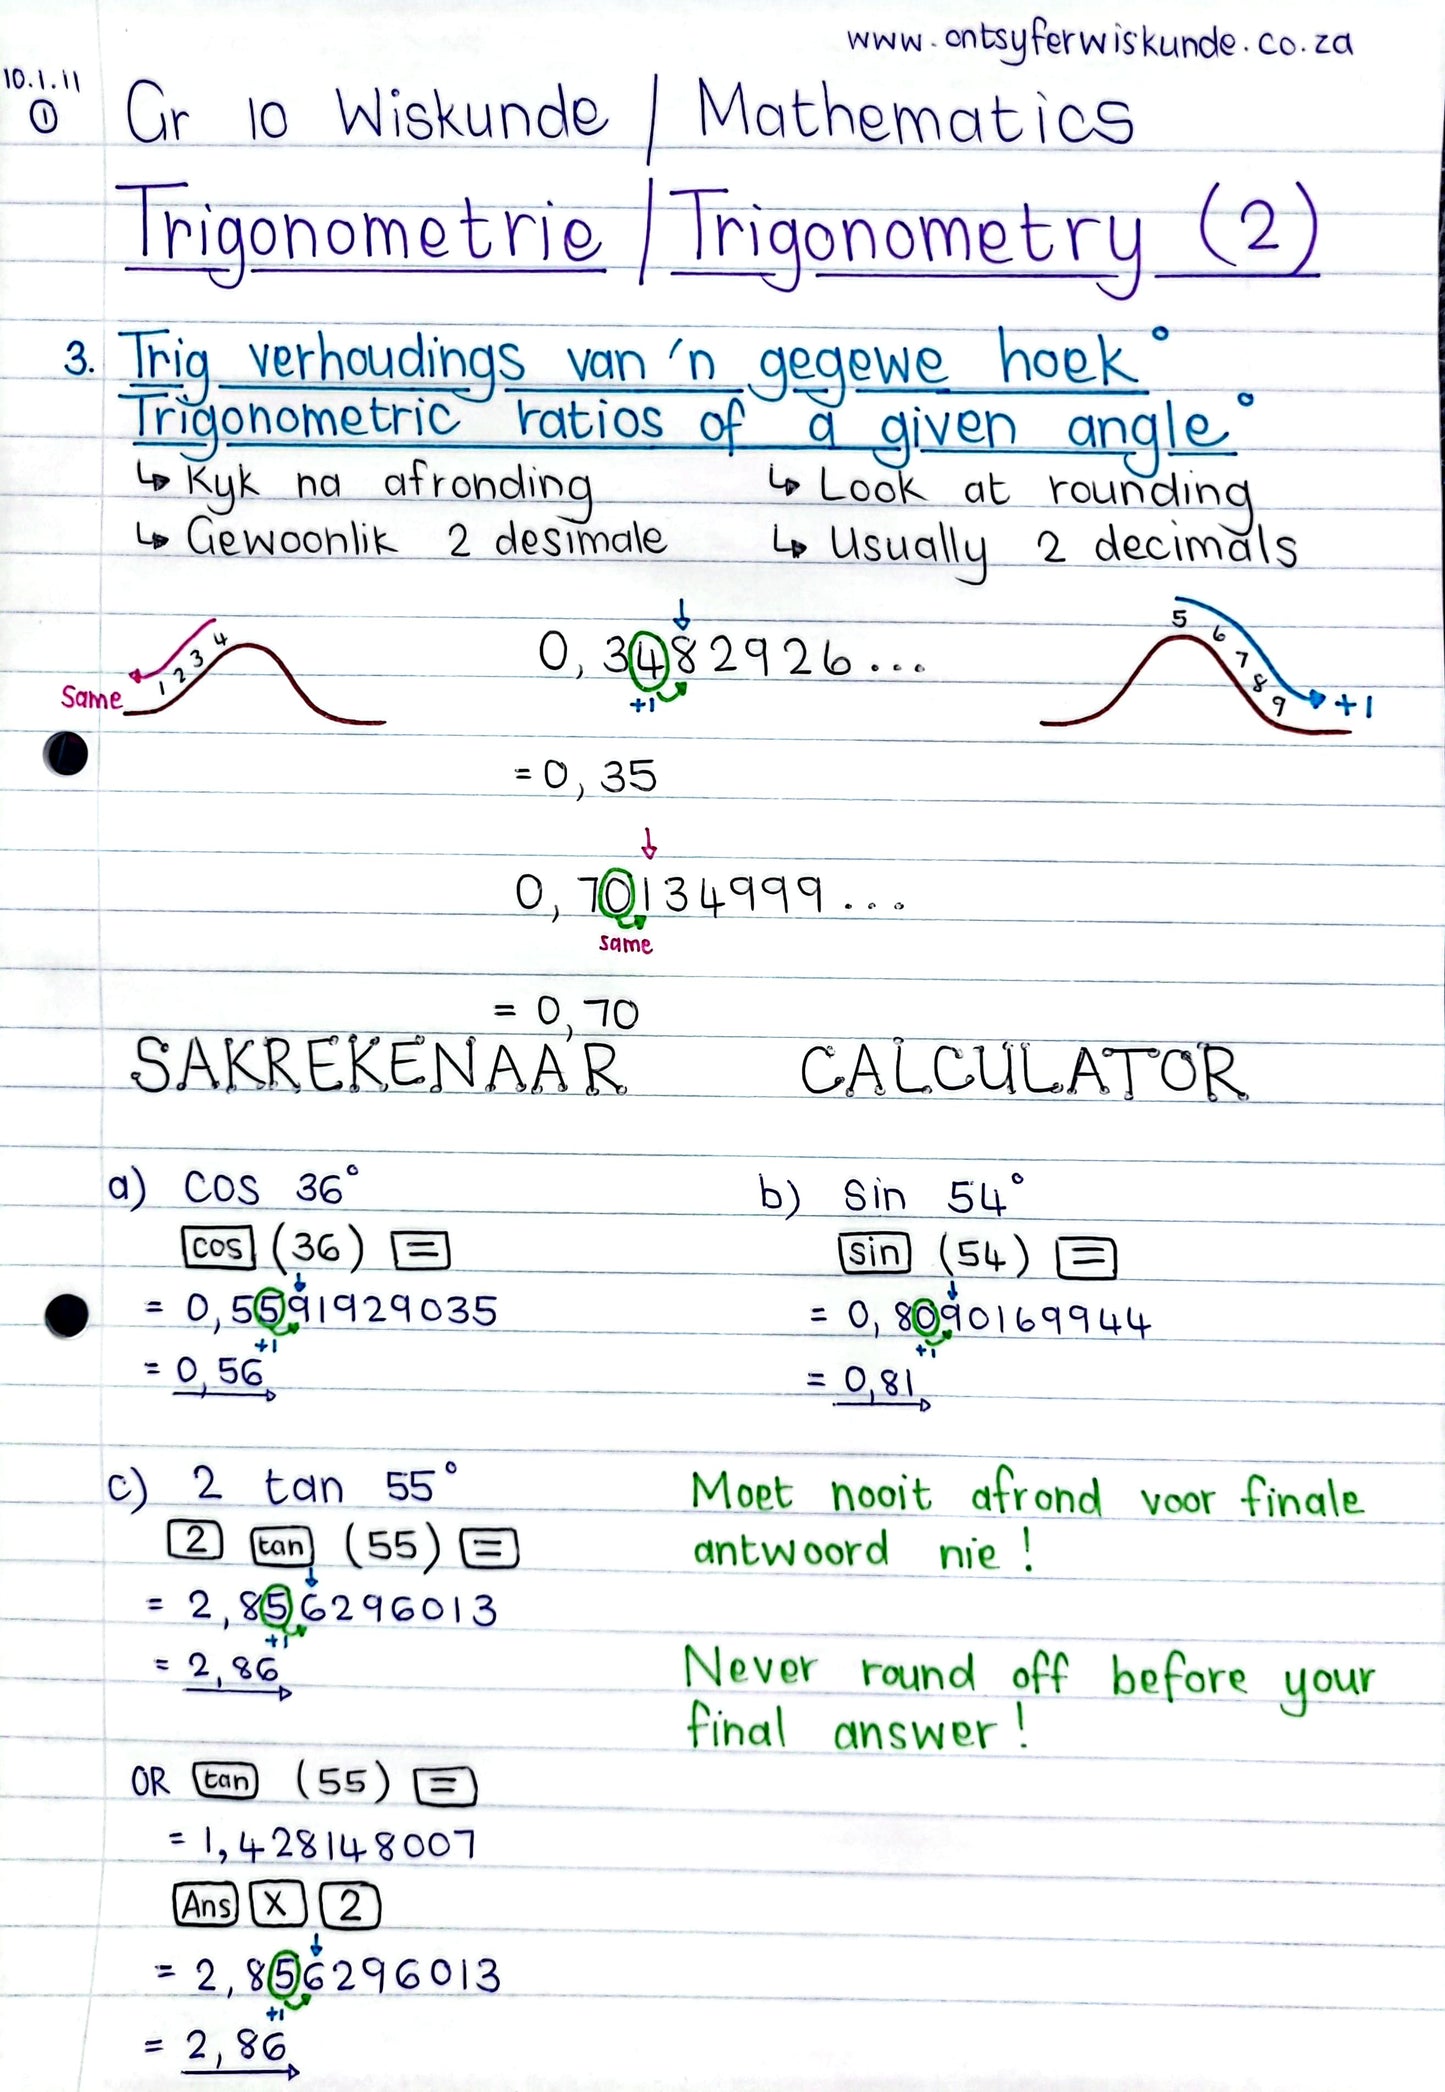 www.ontsyferwiskunde.co.za
10.1.11
① Gr 10 Wiskunde / Mathematics
Trigonometrie / Trigonometry (2)
3. Trig verhoudings van 'n gegewe hoek°
Trigonometric ratios of a given angle°
↳ Kyk na afronding ↳ Look at rounding
↳ Gewoonlik 2 desimale ↳ Usually 2 decimals
Same 1 2 3 4
0,3482926...
+1
5 6 7 8 9 +1
= 0,35
0,70134999...
same
= 0,70
SAKREKENAAR CALCULATOR
a) cos 36° b) sin 54°
cos (36) = sin (54) =
= 0,5591929035 = 0,8090169944
+1 +1
= 0,56 = 0,81
c) 2 tan 55° Moet nooit afrond voor finale
2 tan (55) = antwoord nie!
= 2,856296013
+1
= 2,86 Never round off before your
final answer!
OR tan (55) =
= 1,428148007
Ans X 2
= 2,856296013
+1
= 2,86